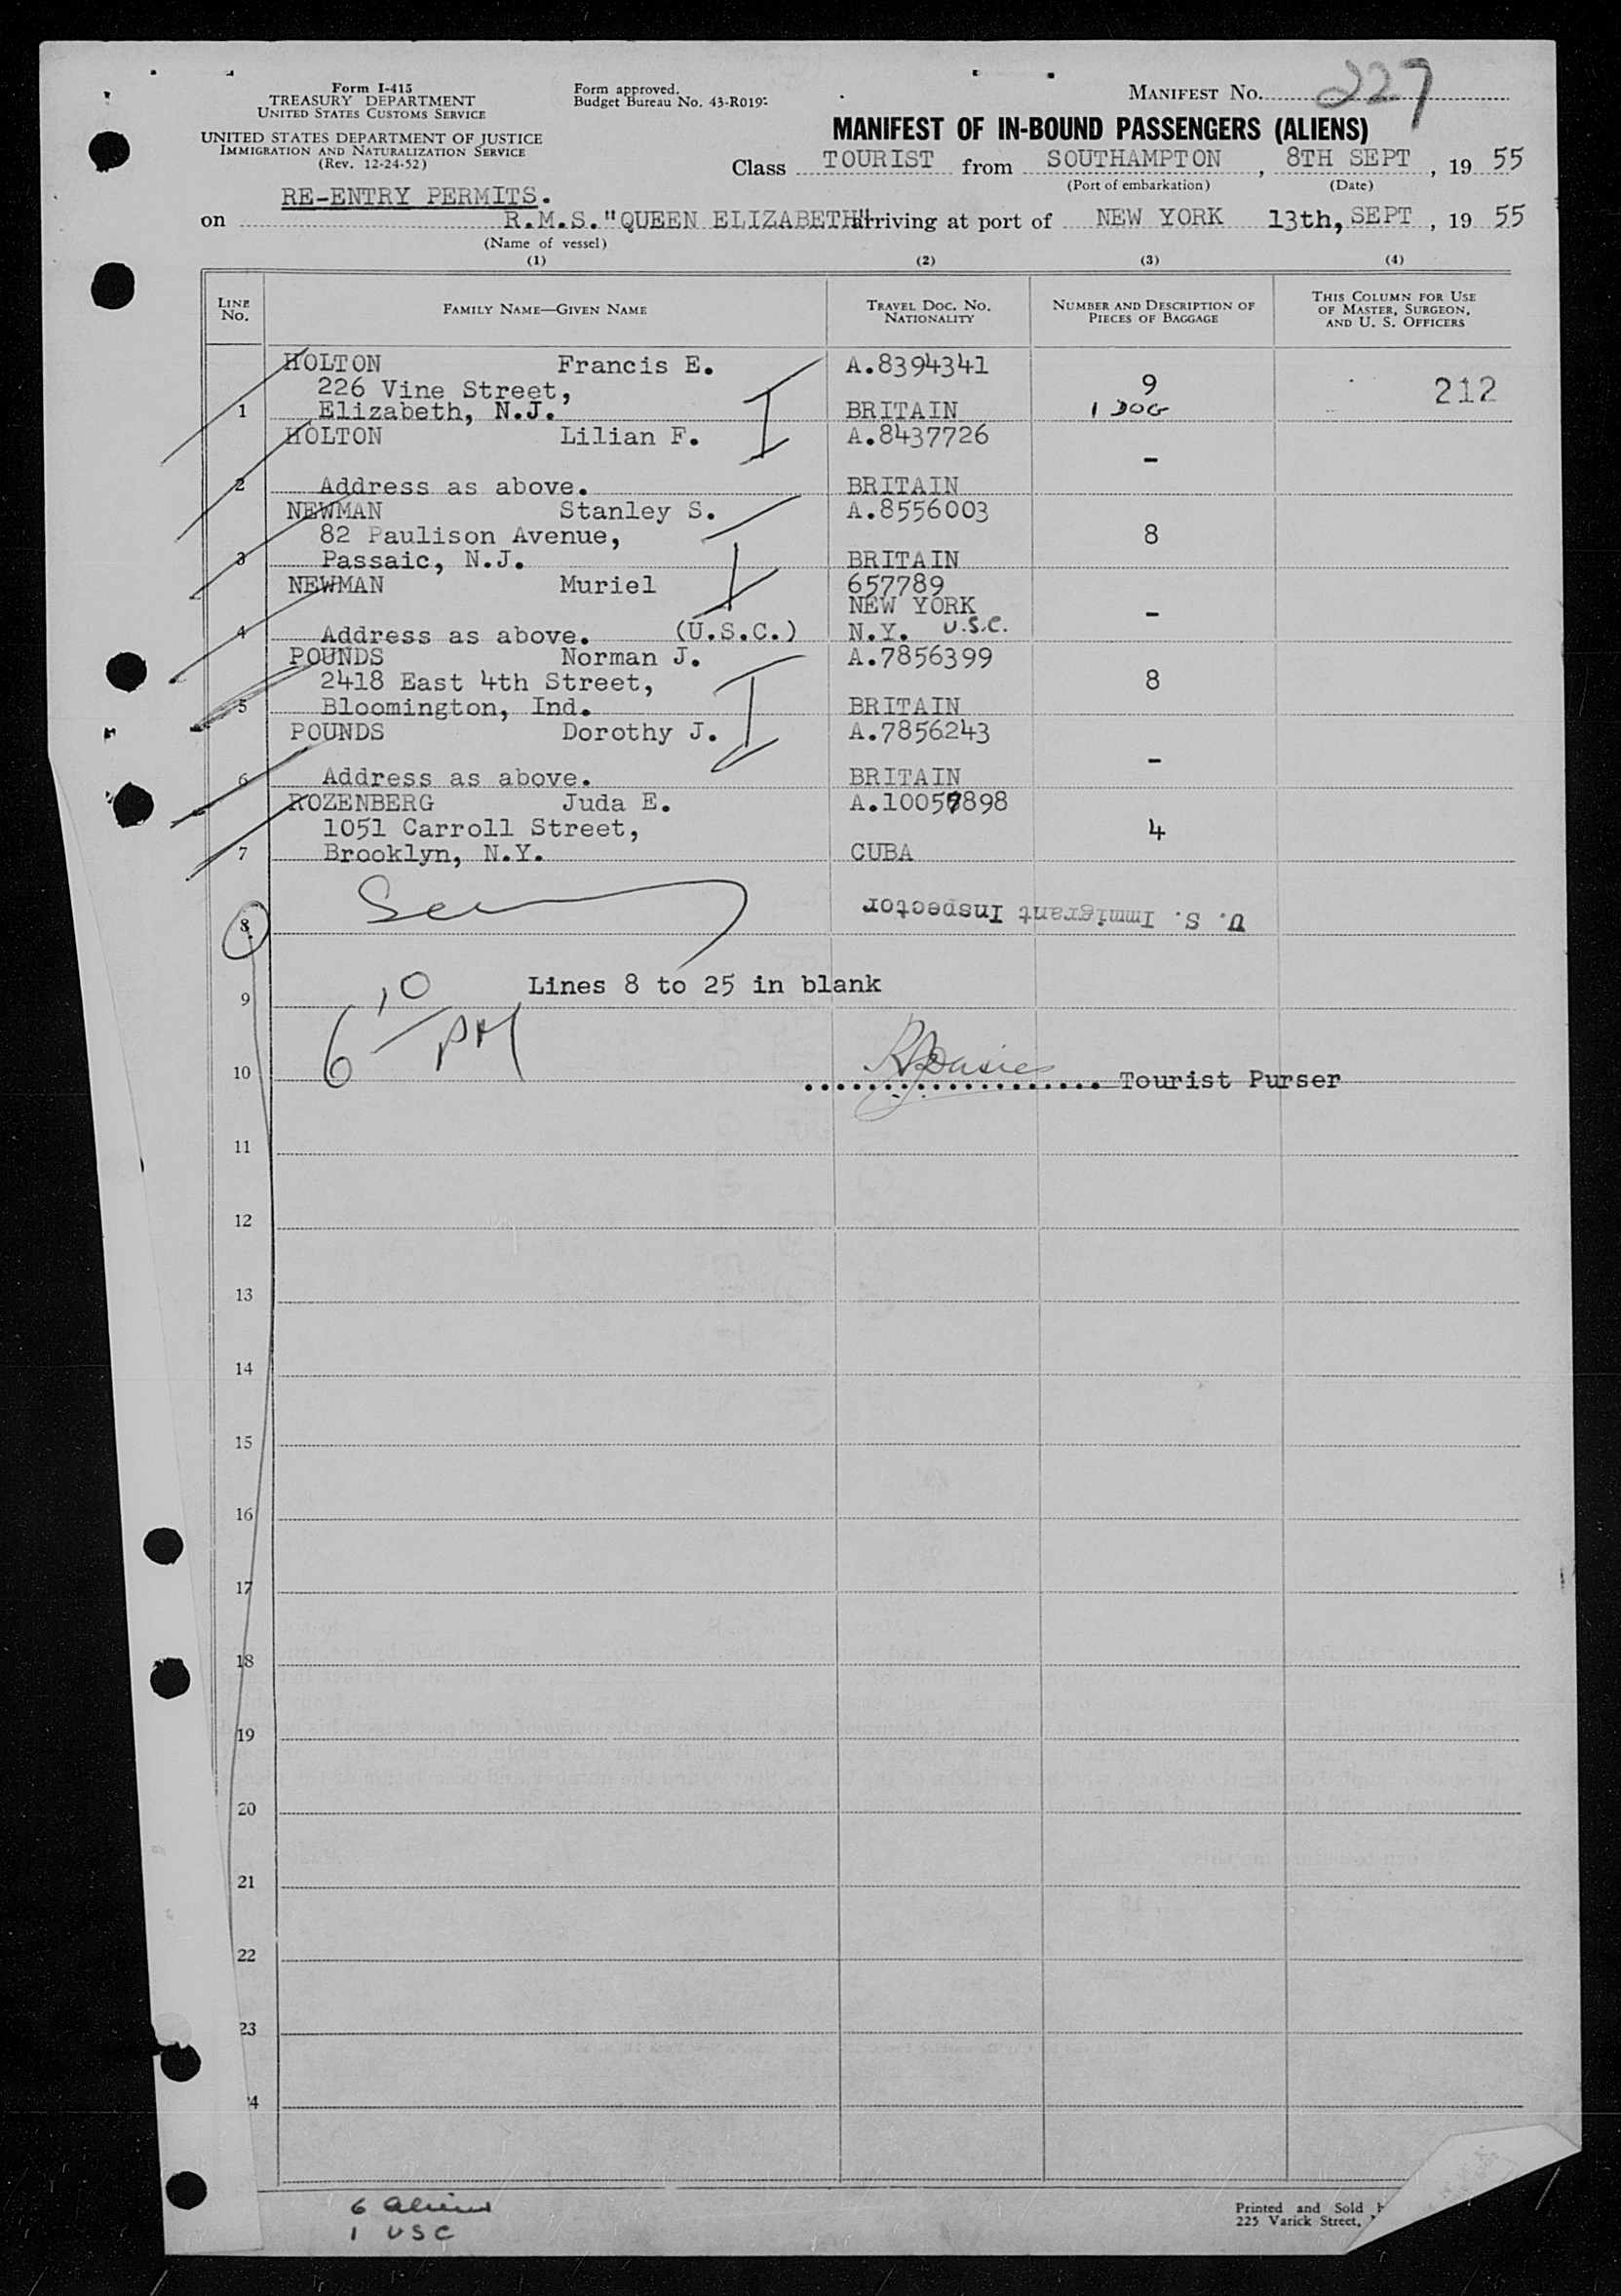 Form I-415
TREASURY DEPARTMENT
UNITED STATES CUSTOMS SERVICE
UNITED STATES DEPARTMENT OF JUSTICE
IMMIGRATION AND NATURALIZATION SERVICE
(Rev. 12-24-52)
Form approved.
Budget Bureau No. 43-R019
MANIFEST No. 227
MANIFEST OF IN-BOUND PASSENGERS (ALIENS)
Class TOURIST from SOUTHAMPTON, 8TH SEPT, 19 55
(Port of embarkation) (Date)
RE-ENTRY PERMITS.
on R.M.S."QUEEN ELIZABETH" arriving at port of NEW YORK 13th, SEPT, 19 55
(Name of vessel)
(1) (2) (3) (4)
LINE No. FAMILY NAME—GIVEN NAME TRAVEL DOC. NO. NATIONALITY NUMBER AND DESCRIPTION OF PIECES OF BAGGAGE THIS COLUMN FOR USE OF MASTER, SURGEON, AND U. S. OFFICERS
HOLTON Francis E. A.8394341
226 Vine Street, 9 212
1 Elizabeth, N.J. BRITAIN 1 DOG
HOLTON Lilian F. A.8437726
-
2 Address as above. BRITAIN
NEWMAN Stanley S. A.8556003
82 Paulison Avenue, 8
3 Passaic, N.J. BRITAIN
NEWMAN Muriel 657789
NEW YORK -
4 Address as above. (U.S.C.) N.Y. U.S.C.
POUNDS Norman J. A.7856399
2418 East 4th Street, 8
5 Bloomington, Ind. BRITAIN
POUNDS Dorothy J. A.7856243
-
6 Address as above. BRITAIN
ROZENBERG Juda E.
1051 Carroll Street, 4
7 Brooklyn, N.Y. CUBA
U. S. Immigrant Inspector
8
9 Lines 8 to 25 in blank
6 10 PM
10 Tourist Purser
11
12
13
14
15
16
17
18
19
20
21
22
23
4
6 aliens
1 USC
Printed and Sold
225 Varick Street,